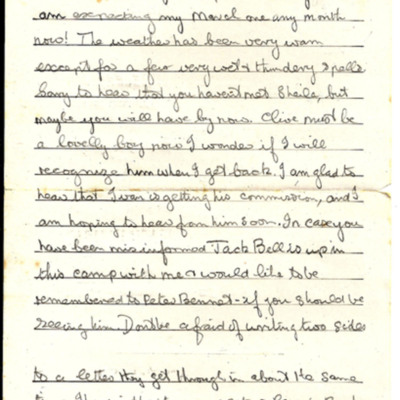 am expecting my March one any month
now! The weather has been very warm
except for a few very wet & thundery spells
Sorry to hear that you havent met Sheila, but
maybe you will have by now. Clive must be
a lovely boy now I wonder if I will
recognize him when I get back. I am glad to
hear that Ivan is getting his commission, and I
am hoping to hear from him soon. In case you
have been misinformed Jack Bell is up in
this camp with me & would like to be
remembered to Peter Bennet - if you should be
seeing him. Dont be afraid of writing two sides
to a letter they get through in about the same